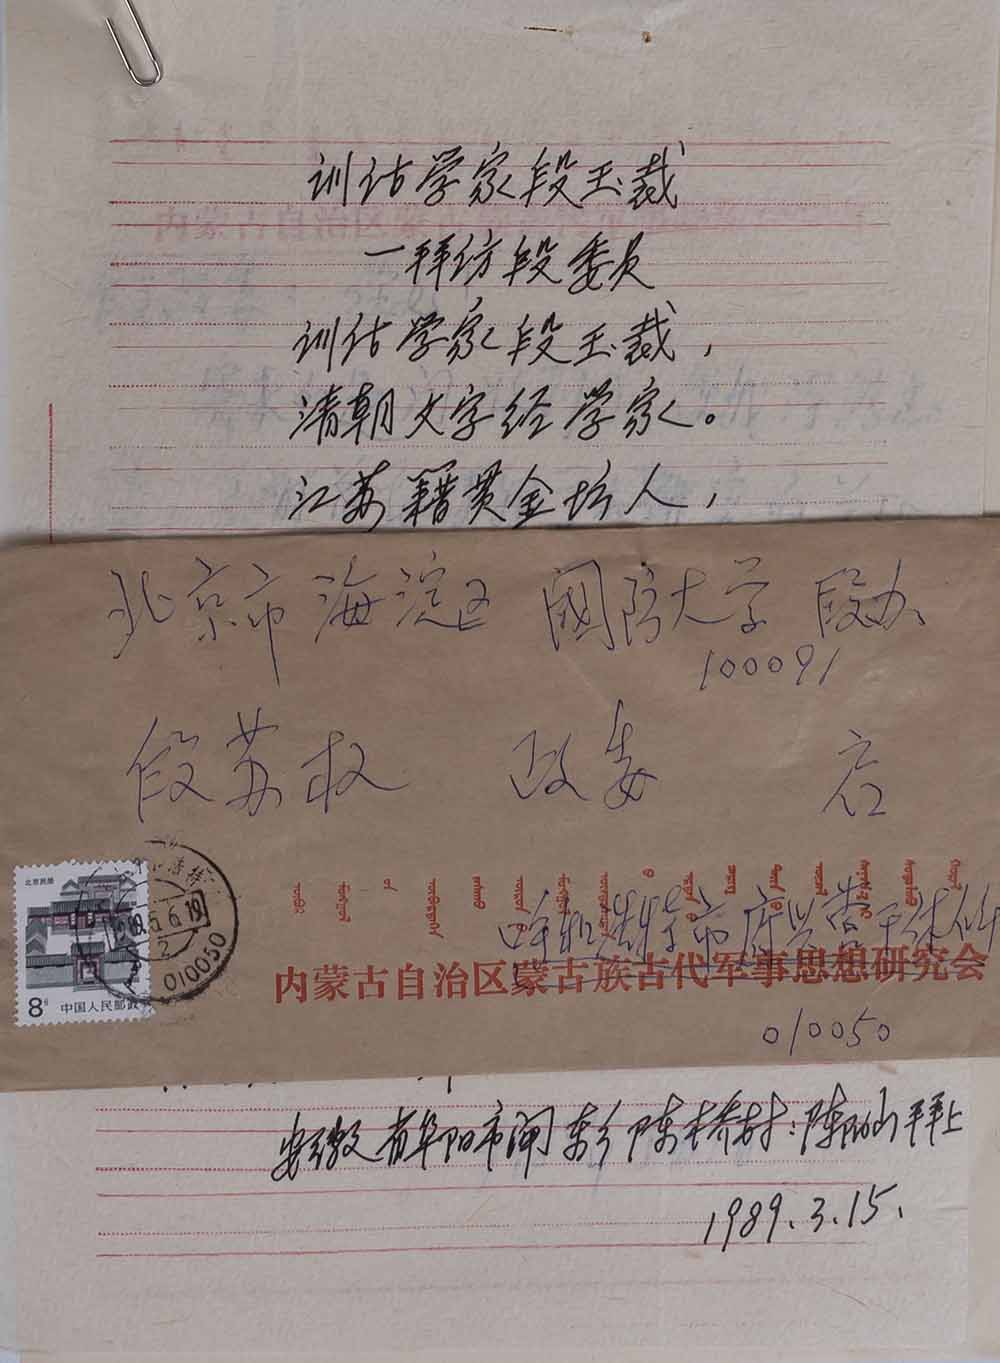 训诂学家段玉裁
一拜访段委员
训诂学家段玉裁，
清朝文字经学家。
江苏籍贯金坛人，
北京市海淀区 国防大学 段办
100091
段苏权 政委 启
北京民居
8分 中国人民邮政
89.5.6.19
010050
呼和浩特市府兴营干休所
内蒙古自治区蒙古族古代军事思想研究会
010050
安徽省阜阳市闸东乡陈桥村：陈山拜上
1989.3.15.